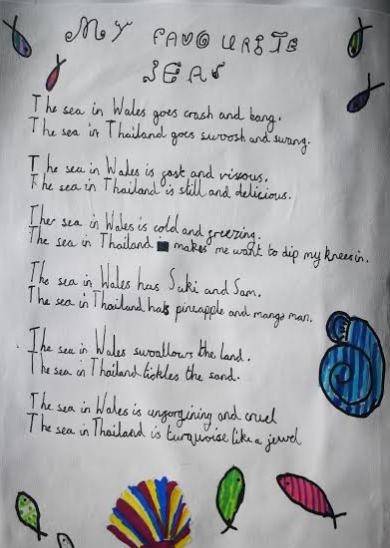 My FAVOURITE
SEAS
The sea in Wales goes crash and bang.
The sea in Thailand goes swoosh and swang.
The sea in Wales is fast and vissous.
The sea in Thailand is still and delicious.
Ther sea in Wales is cold and freezing.
The sea in Thailand makes me want to dip my knees in.
The sea in Wales has Suki and Sam.
The sea in Thailand has pineapple and mango man.
The sea in Wales swallows the land.
The sea in Thailand tickles the sand.
The sea in Wales is unforgining and cruel
The sea in Thailand is turquoise like a jewel